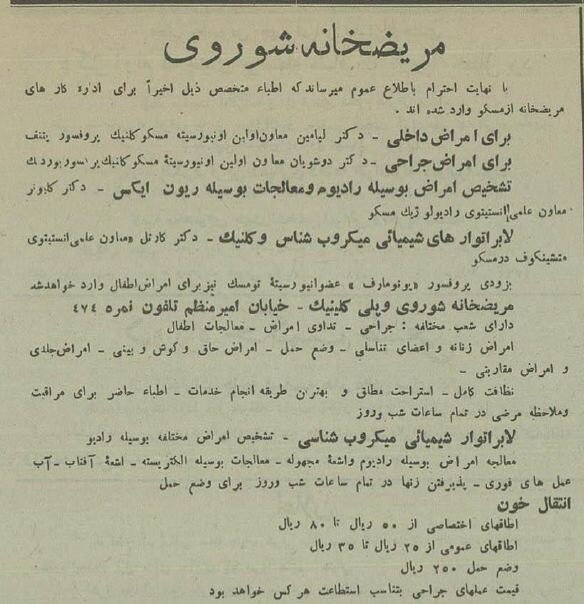 مریضخانه شوروی
با نهایت احترام باطلاع عموم میرساند که اطباء متخصص ذیل اخیراً برای اداره کار های
مریضخانه از مسکو وارد شده اند .
برای امراض داخلی - دکتر لیامین معاون اولین اونیورسیته مسکو کلنیك پروفسور پتنف
برای امراض جراحی - دکتر دوشویان معاون اولین اونیورسیتهٔ مسکو کلنیك پرفسور بوردنك
تشخیص امراض بوسیله رادیوم و معالجات بوسیله ریون ایکس - دکتر کاپونر
معاون علمی انستیتوی رادیولوژیك مسکو
لابراتوار های شیمیائی میکروب شناس و کلنیك - دکتر کارتل «معاون علمی انستیتوی
متشینکوف در مسکو
بزودی پروفسور «پونومارف» عضو انیورسیتهٔ تومسك نیز برای امراض اطفال وارد خواهد شد
مریضخانه شوروی و پلی کلینیك - خیابان امیر منظم تلفون نمره ٤٧٤
دارای شعب مختلفه : جراحی - تداوی امراض - معالجات اطفال
امراض زنانه و اعضای تناسلی - وضع حمل - امراض حلق و گوش و بینی - امراض جلدی
و امراض مقاربتی -
نظافت کامل - استراحت مطلق و بهترین طریقه انجام خدمات - اطباء حاضر برای مراقبت
وملاحظه مرضی در تمام ساعات شب و روز
لابراتوار شیمیائی میکروب شناسی - تشخیص امراض مختلفه بوسیله رادیو
معالجه امراض بوسیله رادیوم و اشعهٔ مجهوله - معالجات بوسیله الکتریسته - اشعهٔ آفتاب - آب
عمل های فوری - پذیرفتن زنها در تمام ساعات شب و روز برای وضع حمل
انتقال خون
اطاقهای اختصاصی از ۵۰ ریال تا ۸۰ ریال
اطاقهای عمومی از ۲۵ ریال تا ۳۵ ریال
وضع حمل ۲۵۰ ریال
قیمت عملهای جراحی بتناسب استطاعت هر کس خواهد بود